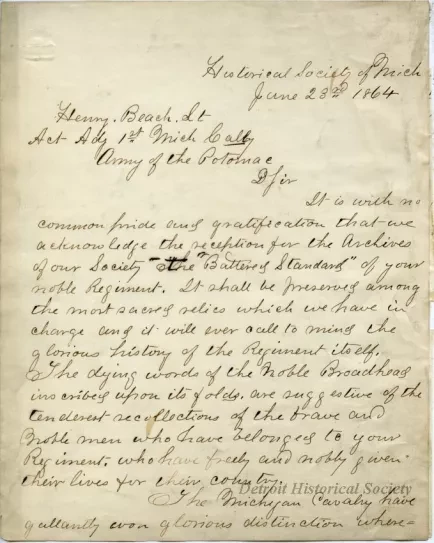 Historical Society of Mich
June 23rd 1864
Henry. Beach. Lt
Act Adj 1st Mich Cally
Army of the Potomac
D Sir
It is with no
common pride and gratification that we
acknowledge the reception for the Archives
of our Society "the "Battered Standard" of your
noble Regiment. It shall be preserved among
the most sacred relics which we have in
charge and it will ever call to mind the
glorious history of the Regiment itself.
The dying words of the Noble Broadhead
inscribed upon its folds, are suggestive of the
tenderest recollections of the brave and
Noble men who have belonged to your
Regiment, who have freely and nobly given
their lives for their country.
Detroit Historical Society
The Michigan Cavalry have
gallantly won glorious distinction where=